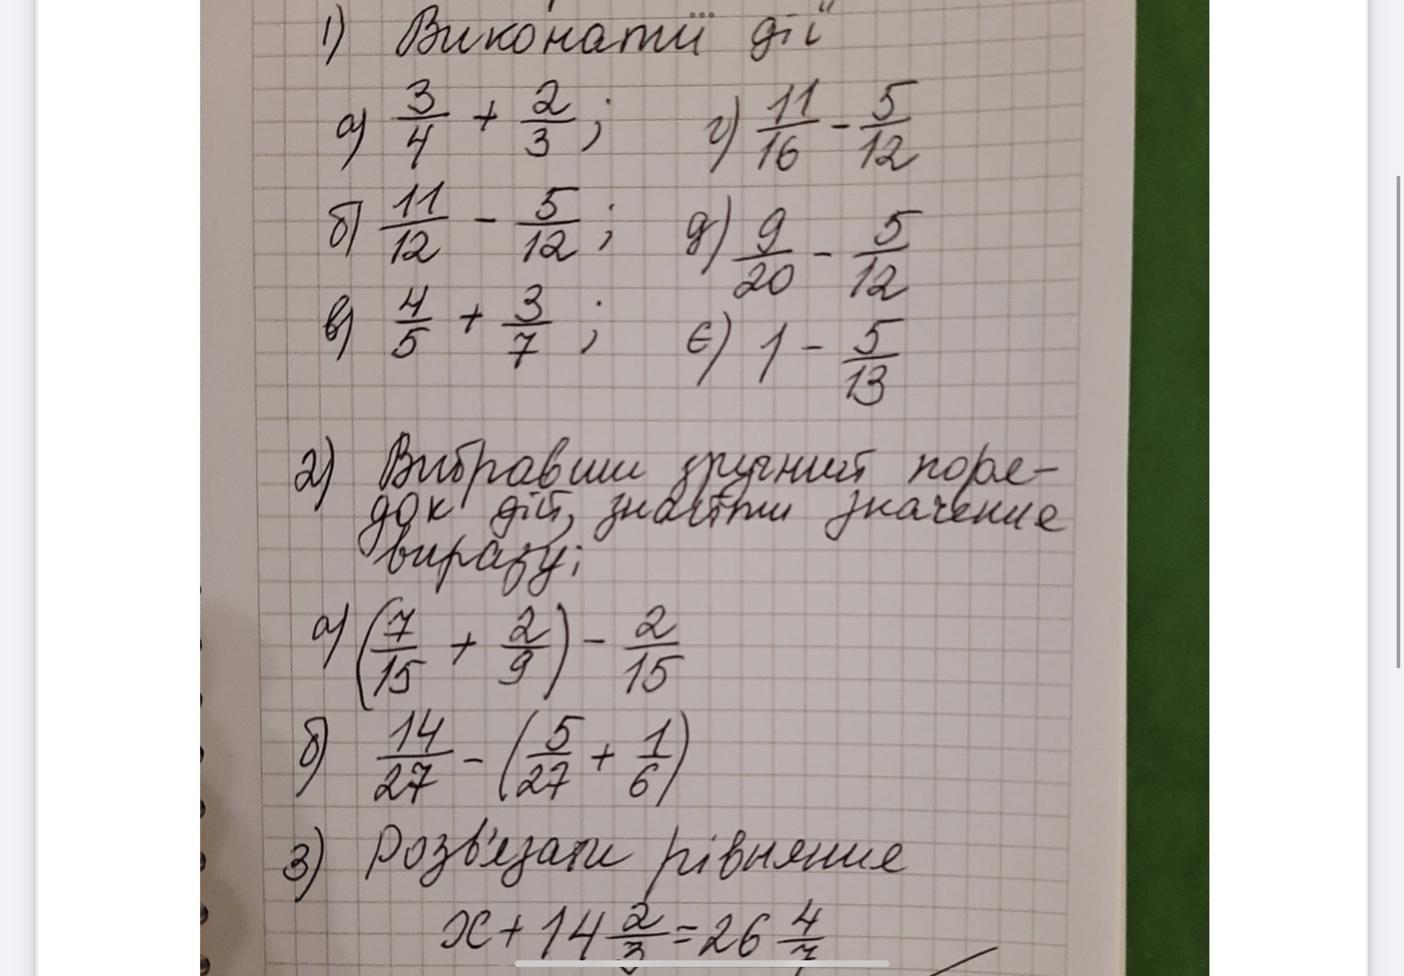 1) Виконати дії
а) 3/4 + 2/3; г) 11/16 - 5/12
б) 11/12 - 5/12; д) 9/20 - 5/12
в) 4/5 + 3/7; є) 1 - 5/13
2) Вибравши зручний поря-
док дій, знайти значення
виразу:
а) (7/15 + 2/9) - 2/15
б) 14/27 - (5/27 + 1/6)
3) Розв'язати рівняння
x + 14 2/3 = 26 4/7